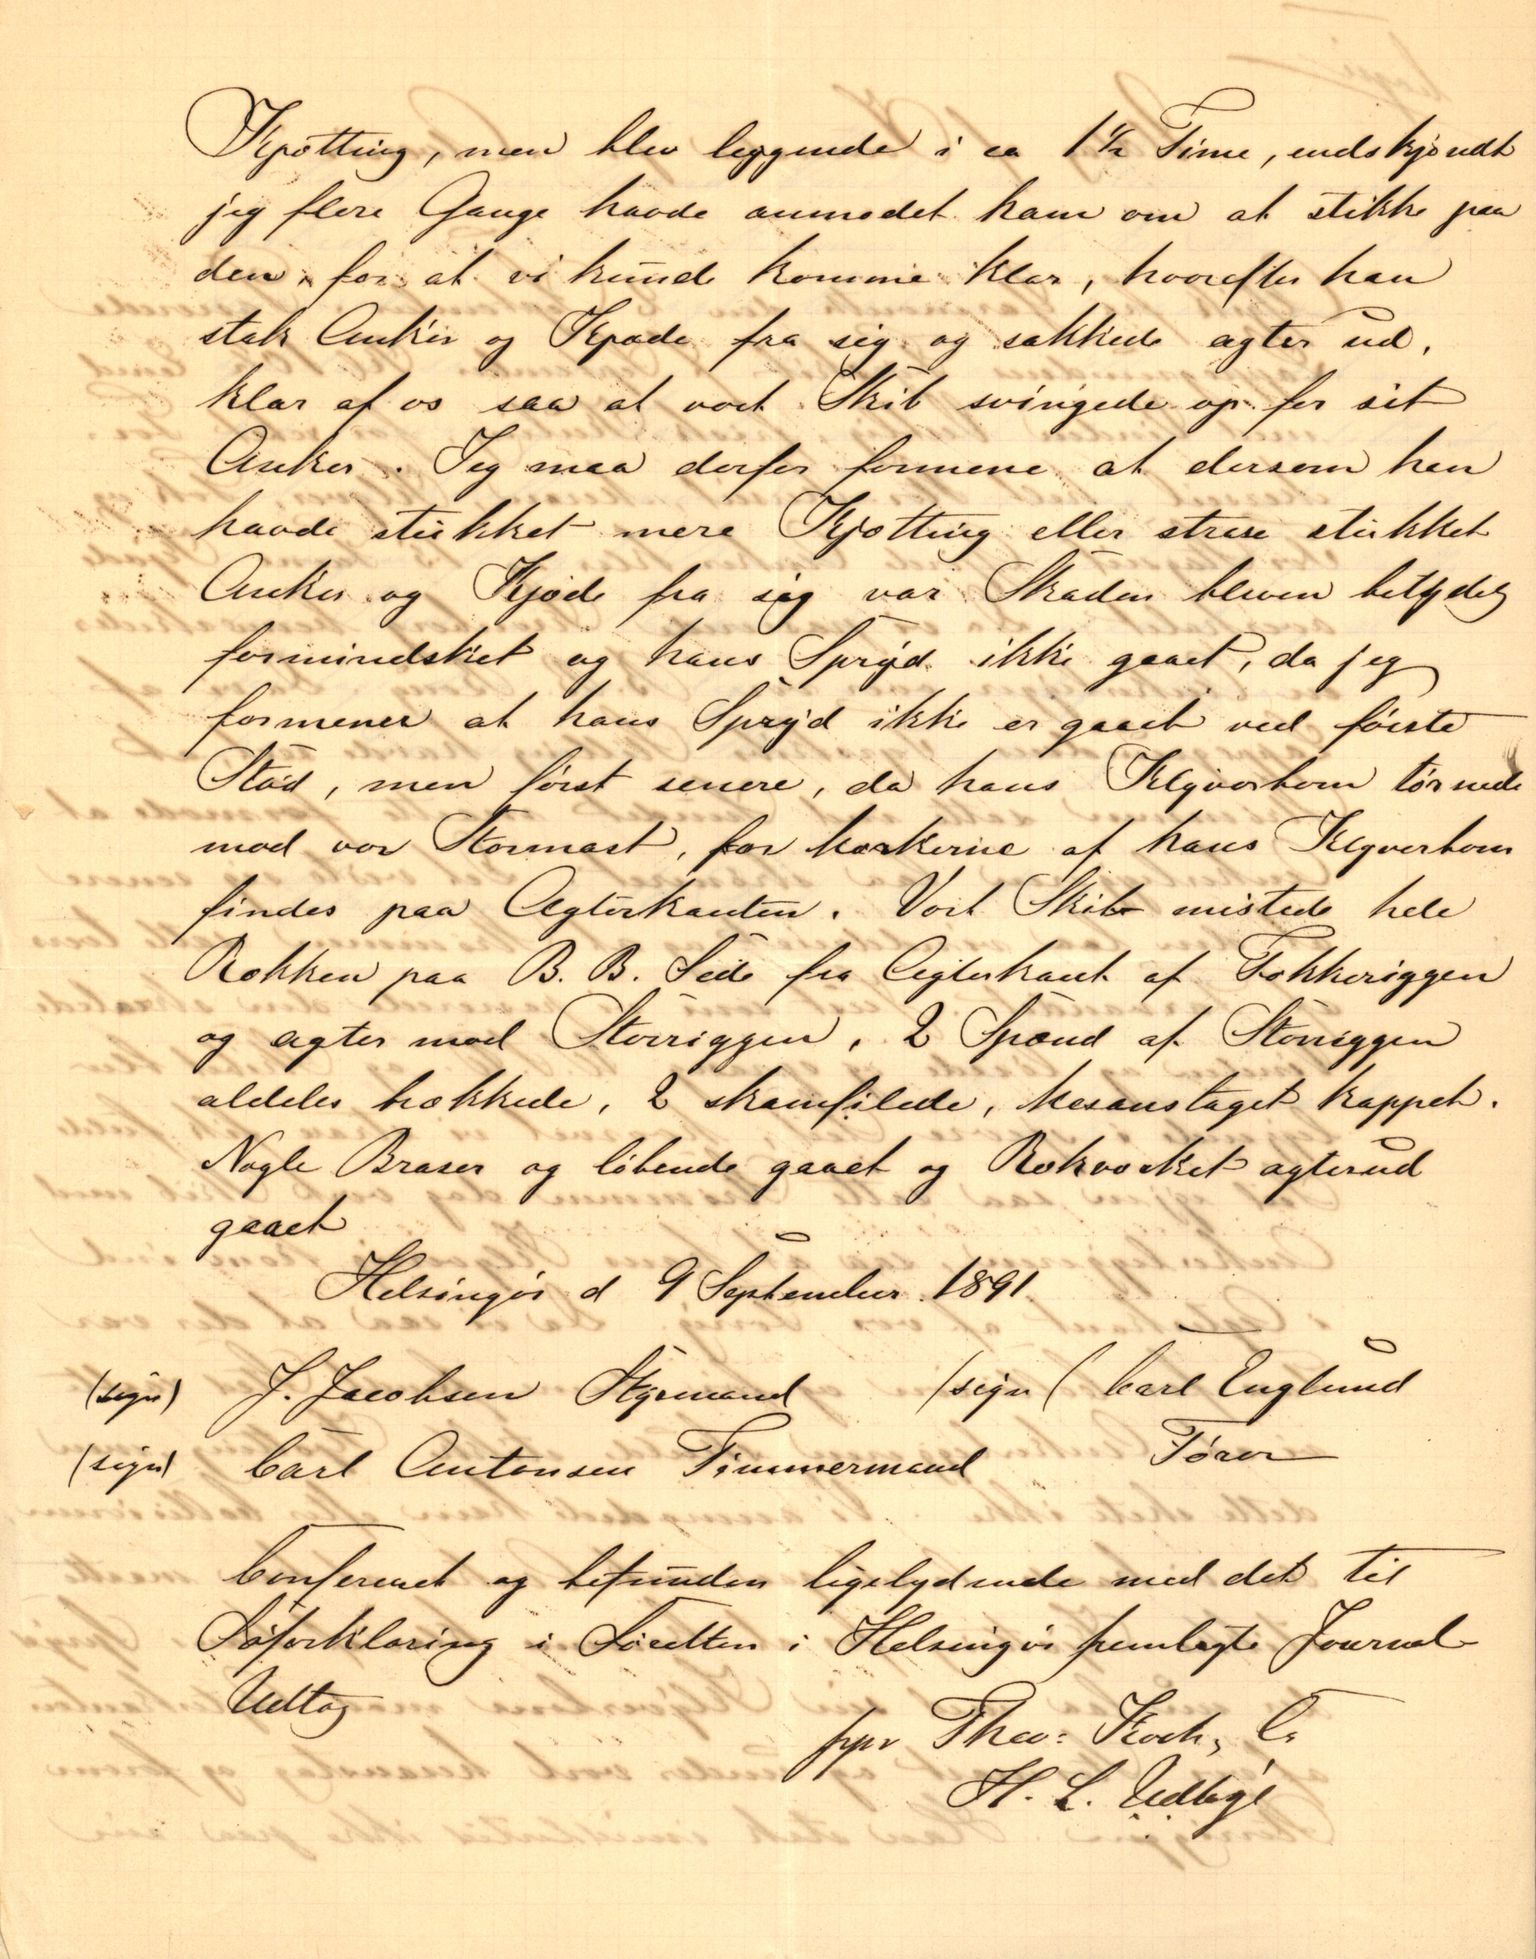 Kjøtting, men blev leggende i ca 1½ Time, endskjøndt
jeg flere Gange havde anmodet ham om at stikke paa
den, for at vi kunde komme klar, hvorefter han
stak Anker og Kjæde fra sig og sakkede agter ud,
klar af os saa at vort Skib svingede op for sit
Anker. Jeg maa derfor formene at dersom han
havde stukket mere Kjøtting eller strax stukket
Anker og Kjæde fra sig var Skaden bleven betydelig
formindsket og hans Spryd ikke gaaet, da jeg
formener at hans Spryd ikke er gaaet ved første
Stød, men først senere, da hans Klyverbom tørnede
mod vor Stormast, for Mærkerne af hans Klyverbom
findes paa Agterkanten. Vort Skib mistede hele
Rækken paa B. B. Side fra Agterkant af Fokkeriggen
og agter mod Storriggen, 2 Spænd af Storriggen
aldeles brækkede, 2 skamfilede, Mesanstaget kappet.
Nogle Braser og løbende gaaet og Rækværket agterud
gaaet
Helsingør d 9 September 1891
(sign) J. Jacobsen Styrmand (sign) Carl Englund
(sign) Carl Antonsen Timmermand Fører
Confereret og befunden ligelydende med det til
Søforklaring i Søretten i Helsingør fremlagte Journal-
Udtog
ppr Theo: Koch, Co
H. L.